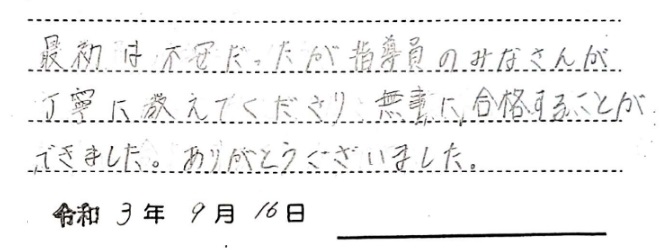 最初は不安だったが指導員のみなさんが
丁寧に教えてくださり、無事に合格することが
できました。ありがとうございました。
令和 3年 9月 16日